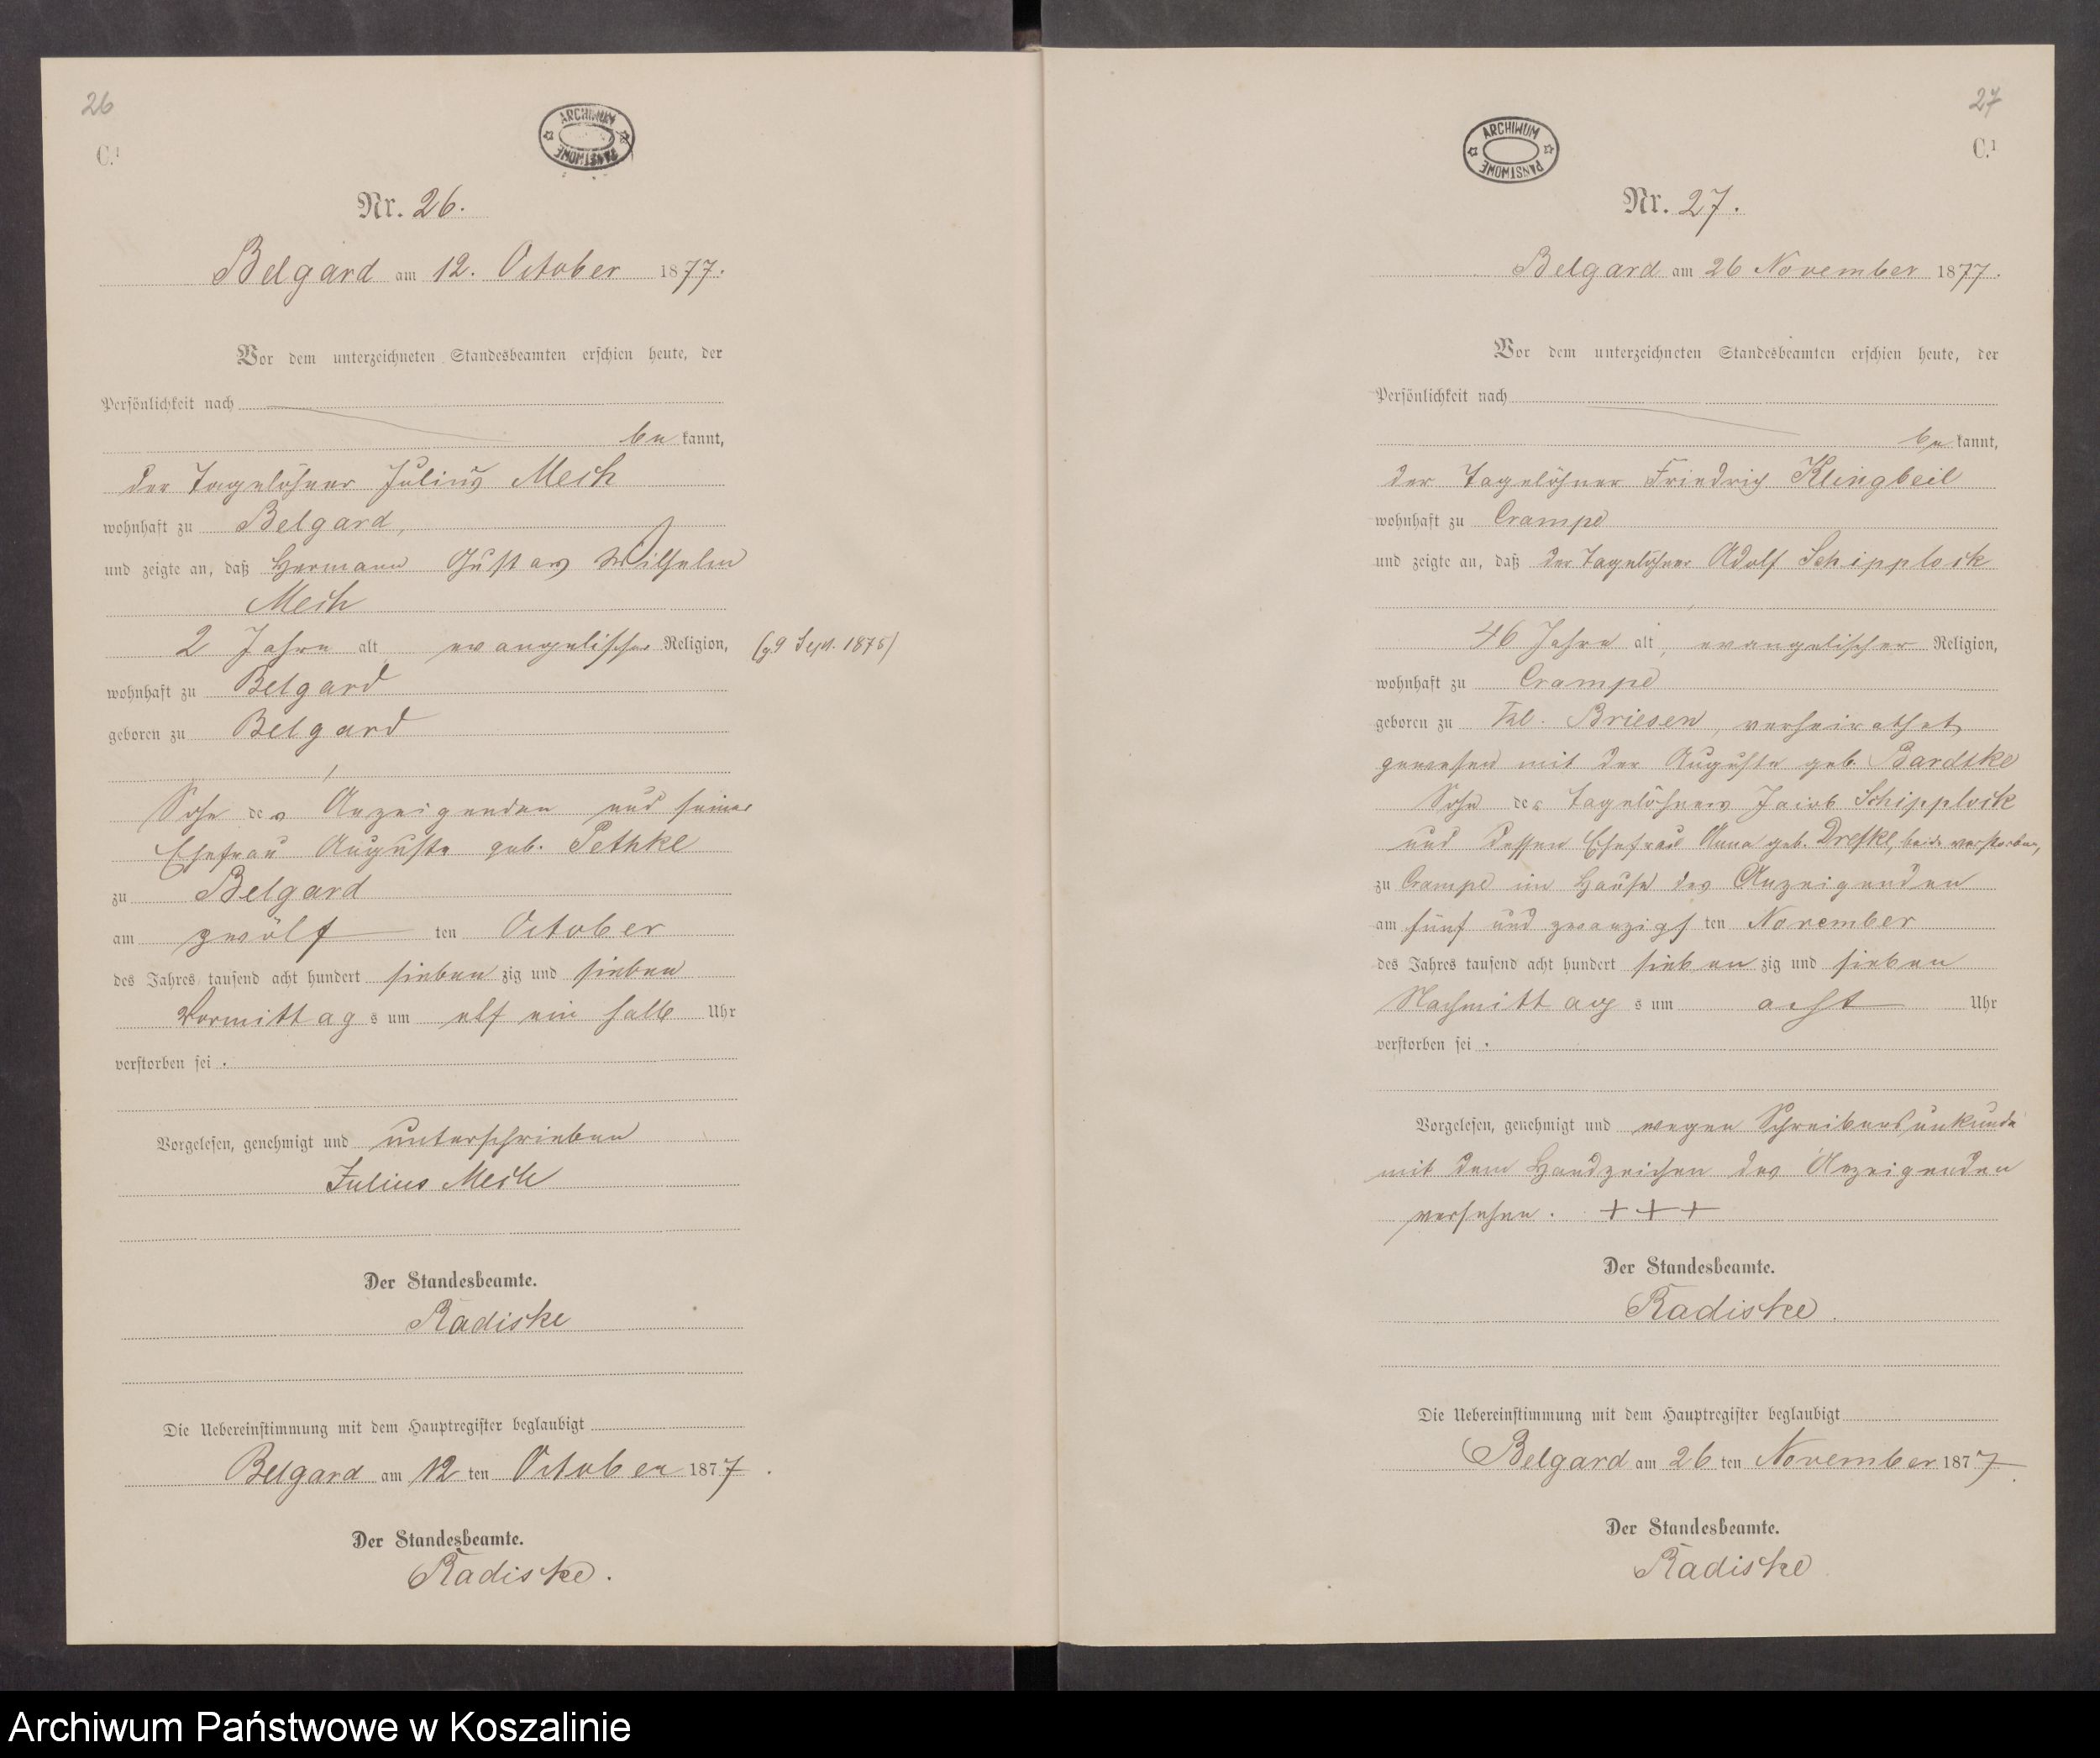 26
ARCHIWUM PAŃSTWOWE
C.¹
Nr. 26.
Belgard am 12. October 1877.
Vor dem unterzeichneten Standesbeamten erschien heute, der
Persönlichkeit nach
be kannt,
der Tagelöhner Julius Mech
wohnhaft zu Belgard,
und zeigte an, daß Hermann Gustav Wilhelm
Mech
2 Jahre alt, evangelischer Religion,
wohnhaft zu Belgard
geboren zu Belgard
Sohn des Anzeigenden und seiner
Ehefrau Auguste geb. Pethke
zu Belgard
am zwölf ten October
des Jahres tausend acht hundert sieben zig und sieben
Vormittag s um elf ein halb Uhr
verstorben sei .
Vorgelesen, genehmigt und unterschrieben
Julius Mech
Der Standesbeamte.
Radiske
Die Uebereinstimmung mit dem Hauptregister beglaubigt
Belgard am 12 ten October 1877.
Der Standesbeamte.
Radiske.
27
ARCHIWUM PAŃSTWOWE
C.¹
Nr. 27.
Belgard am 26 November 1877.
Vor dem unterzeichneten Standesbeamten erschien heute, der
Persönlichkeit nach
be kannt,
der Tagelöhner Friedrich Klingbeil
wohnhaft zu Crampe
und zeigte an, daß der Tagelöhner Adolf Schipplock
46 Jahre alt, evangelischer Religion,
wohnhaft zu Crampe
geboren zu Kl. Briesen, verheirathet
gewesen mit der Auguste geb. Bardtke
Sohn des Tagelöhners Jacob Schipplock
und dessen Ehefrau Anna geb. Dreske, beide verstorben,
zu Crampe im Hause des Anzeigenden
am fünf und zwanzigs ten November
des Jahres tausend acht hundert sieben zig und sieben
Nachmittag s um acht Uhr
verstorben sei .
Vorgelesen, genehmigt und wegen Schreibensunkunde
mit dem Handzeichen des Anzeigenden
versehen. + + +
Der Standesbeamte.
Radiske.
Die Uebereinstimmung mit dem Hauptregister beglaubigt
Belgard am 26 ten November 1877.
Der Standesbeamte.
Radiske
Archiwum Państwowe w Koszalinie